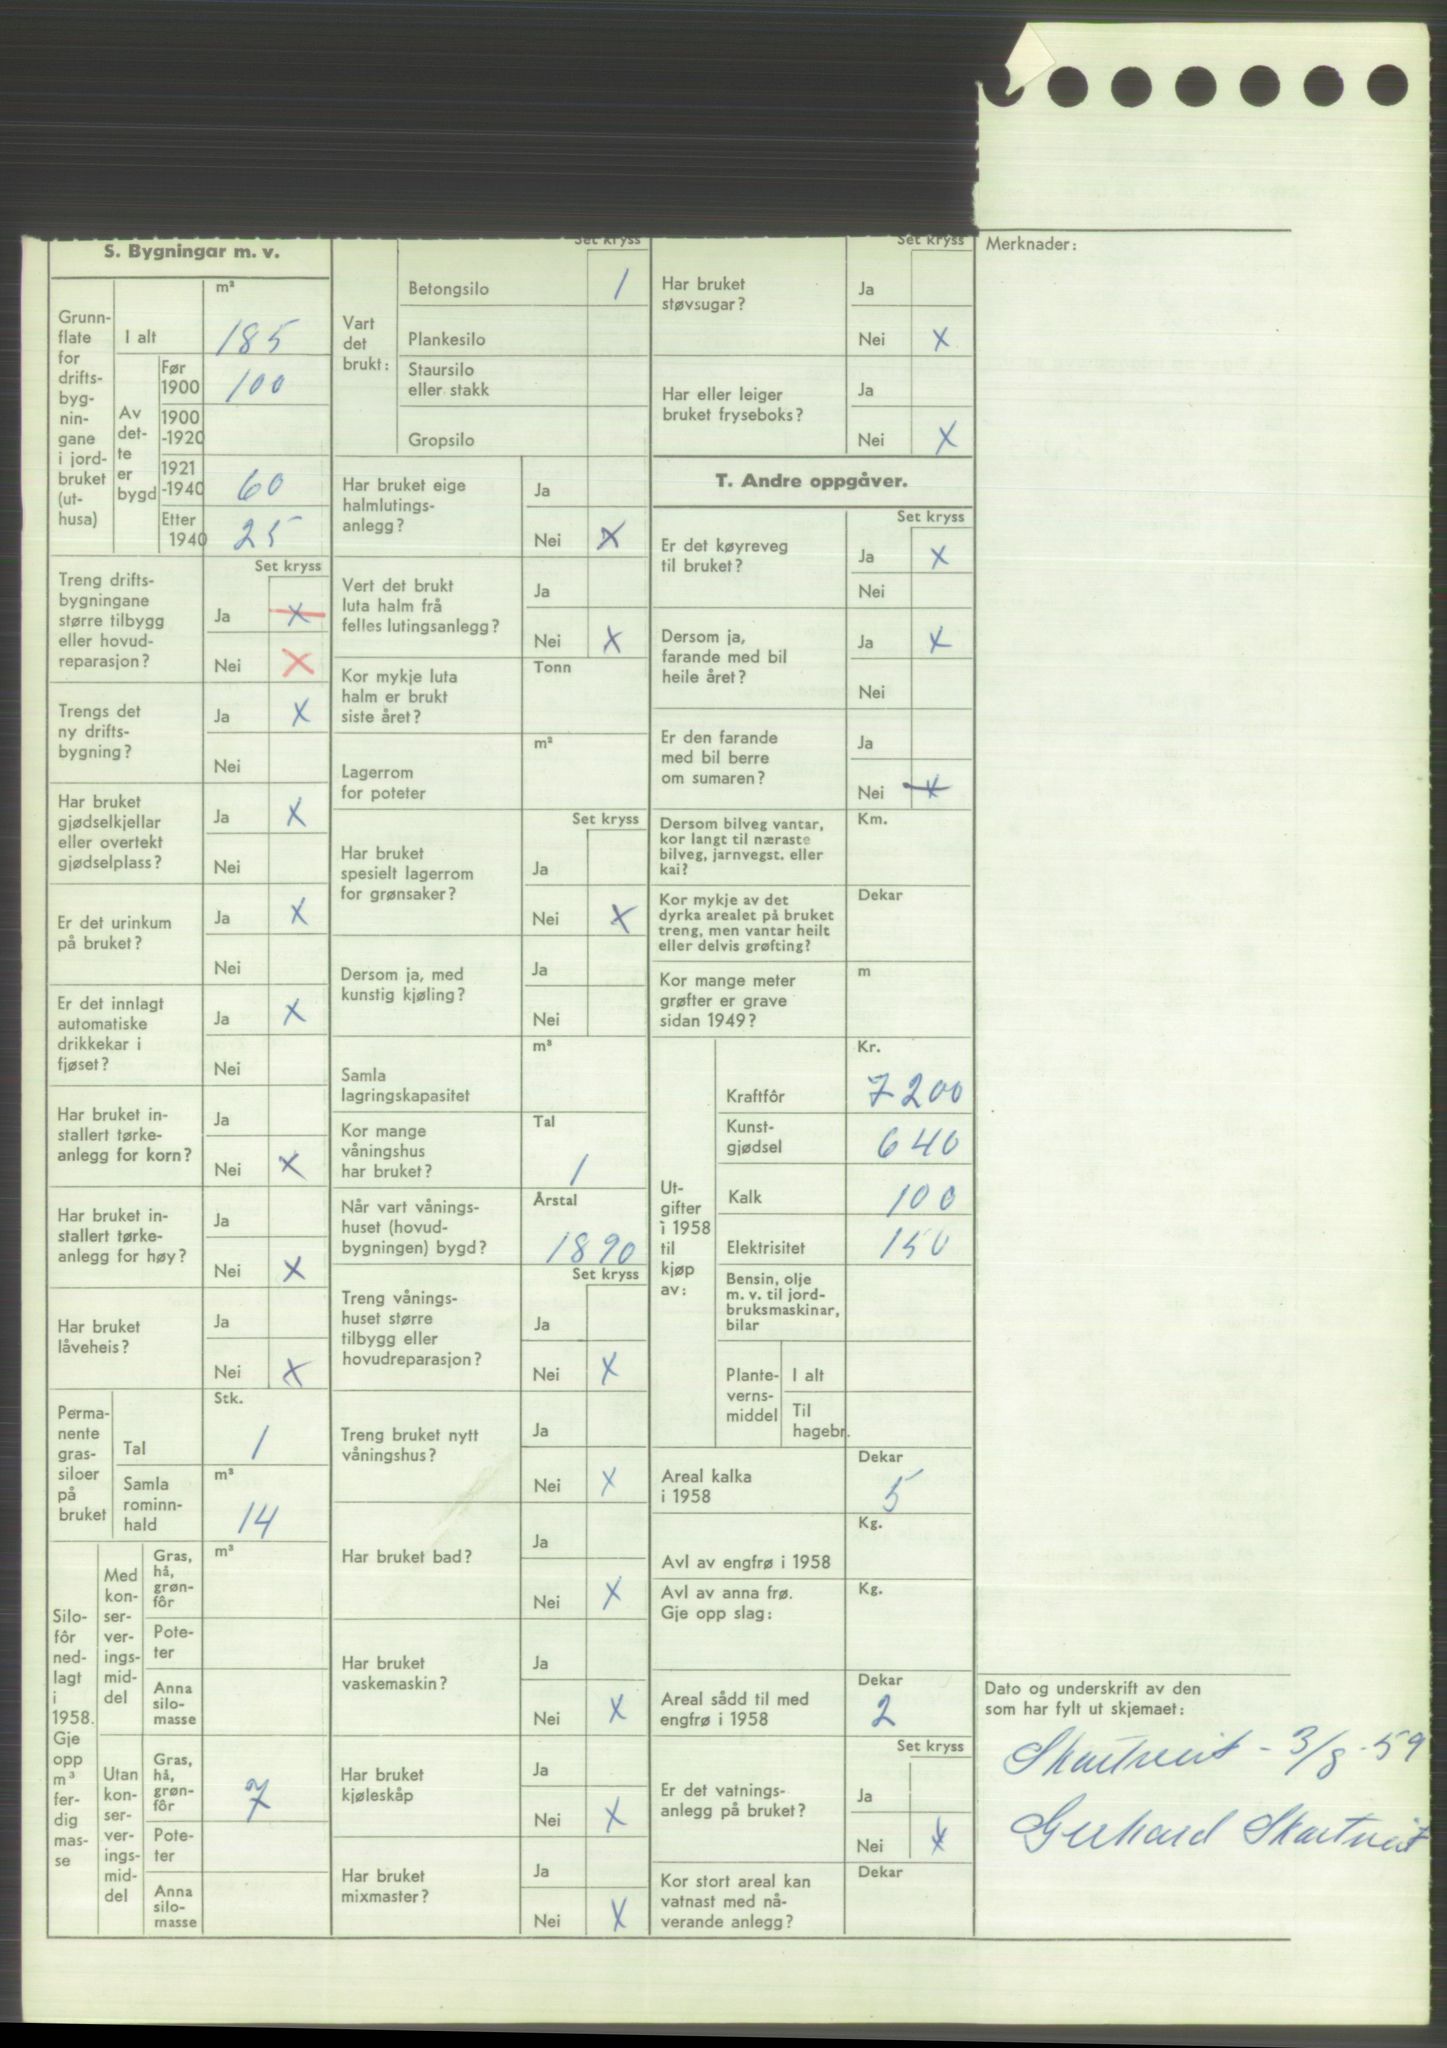 S. Bygningar m. v.
Grunn-
flate
for
drifts-
byg-
nin-
gane
i jord-
bruket
(ut-
husa)
m²
I alt 185
Av
det-
te
er
bygd
Før
1900 100
1900
-1920
1921
-1940 60
Etter
1940 25
Set kryss
Treng drifts-
bygningane
større tilbygg
eller hovud-
reparasjon?
Ja X
Nei X
Trengs det
ny drifts-
bygning?
Ja X
Nei
Har bruket
gjødselkjellar
eller overtekt
gjødselplass?
Ja X
Nei
Er det urinkum
på bruket?
Ja X
Nei
Er det innlagt
automatiske
drikkekar i
fjøset?
Ja X
Nei
Har bruket in-
stallert tørke-
anlegg for korn?
Ja
Nei X
Har bruket in-
stallert tørke-
anlegg for høy?
Ja
Nei X
Har bruket
låveheis?
Ja
Nei X
Perma-
nente
gras-
siloer
på
bruket
Stk.
Tal 1
m³
Samla
rominn-
hald 14
Silo-
fôr
ned-
lagt
i
1958.
Gje
opp
m³
fer-
dig
mas-
se
Med
kon-
ser-
ver-
ings-
mid-
del
m³
Gras,
hå,
grøn-
fôr
Pote-
ter
Anna
silo-
masse
Utan
kon-
ser-
ver-
ings-
mid-
del
Gras,
hå,
grøn-
fôr 7
Pote-
ter
Anna
silo-
masse
Set kryss
Vart
det
brukt:
Betongsilo 1
Plankesilo
Staursilo
eller stakk
Gropsilo
Har bruket eige
halmlutings-
anlegg?
Ja
Nei X
Vert det brukt
luta halm frå
felles lutingsanlegg?
Ja
Nei X
Kor mykje luta
halm er brukt
siste året?
Tonn
Lagerrom
for poteter
m²
Set kryss
Har bruket
spesielt lagerrom
for grønsaker?
Ja
Nei X
Dersom ja, med
kunstig kjøling?
Ja
Nei
Samla
lagringskapasitet
m³
Kor mange
våningshus
har bruket?
Tal
1
Når vart vånings-
huset (hovud-
bygningen) bygd?
Årstal
1890
Set kryss
Treng vånings-
huset større
tilbygg eller
hovudreparasjon?
Ja
Nei X
Treng bruket nytt
våningshus?
Ja
Nei X
Har bruket bad?
Ja
Nei X
Har bruket
vaskemaskin?
Ja
Nei X
Har bruket
kjøleskåp
Ja
Nei X
Har bruket
mixmaster?
Ja
Nei X
Set kryss
Har bruket
støvsugar?
Ja
Nei X
Har eller leiger
bruket fryseboks?
Ja
Nei X
T. Andre oppgåver.
Set kryss
Er det køyreveg
til bruket?
Ja X
Nei
Dersom ja,
farande med bil
heile året?
Ja X
Nei
Er den farande
med bil berre
om sumaren?
Ja
Nei X
Dersom bilveg vantar,
kor langt til næraste
bilveg, jarnvegst. eller
kai?
Km.
Kor mykje av det
dyrka arealet på bruket
treng, men vantar heilt
eller delvis grøfting?
Dekar
Kor mange meter
grøfter er grave
sidan 1949?
m
Ut-
gifter
i 1958
til
kjøp
av:
Kr.
Kraftfôr 7200
Kunst-
gjødsel 640
Kalk 100
Elektrisitet 150
Bensin, olje
m. v. til jord-
bruksmaskinar,
bilar
Plante-
verns-
middel
I alt
Til
hagebr.
Areal kalka
i 1958
Dekar
5
Avl av engfrø i 1958
Kg.
Avl av anna frø.
Gje opp slag:
Kg.
Areal sådd til med
engfrø i 1958
Dekar
2
Set kryss
Er det vatnings-
anlegg på bruket?
Ja
Nei X
Kor stort areal kan
vatnast med nå-
verande anlegg?
Dekar
Merknader:
Dato og underskrift av den
som har fylt ut skjemaet:
Skartveit - 3/8 - 59
Gerhard Skartveit